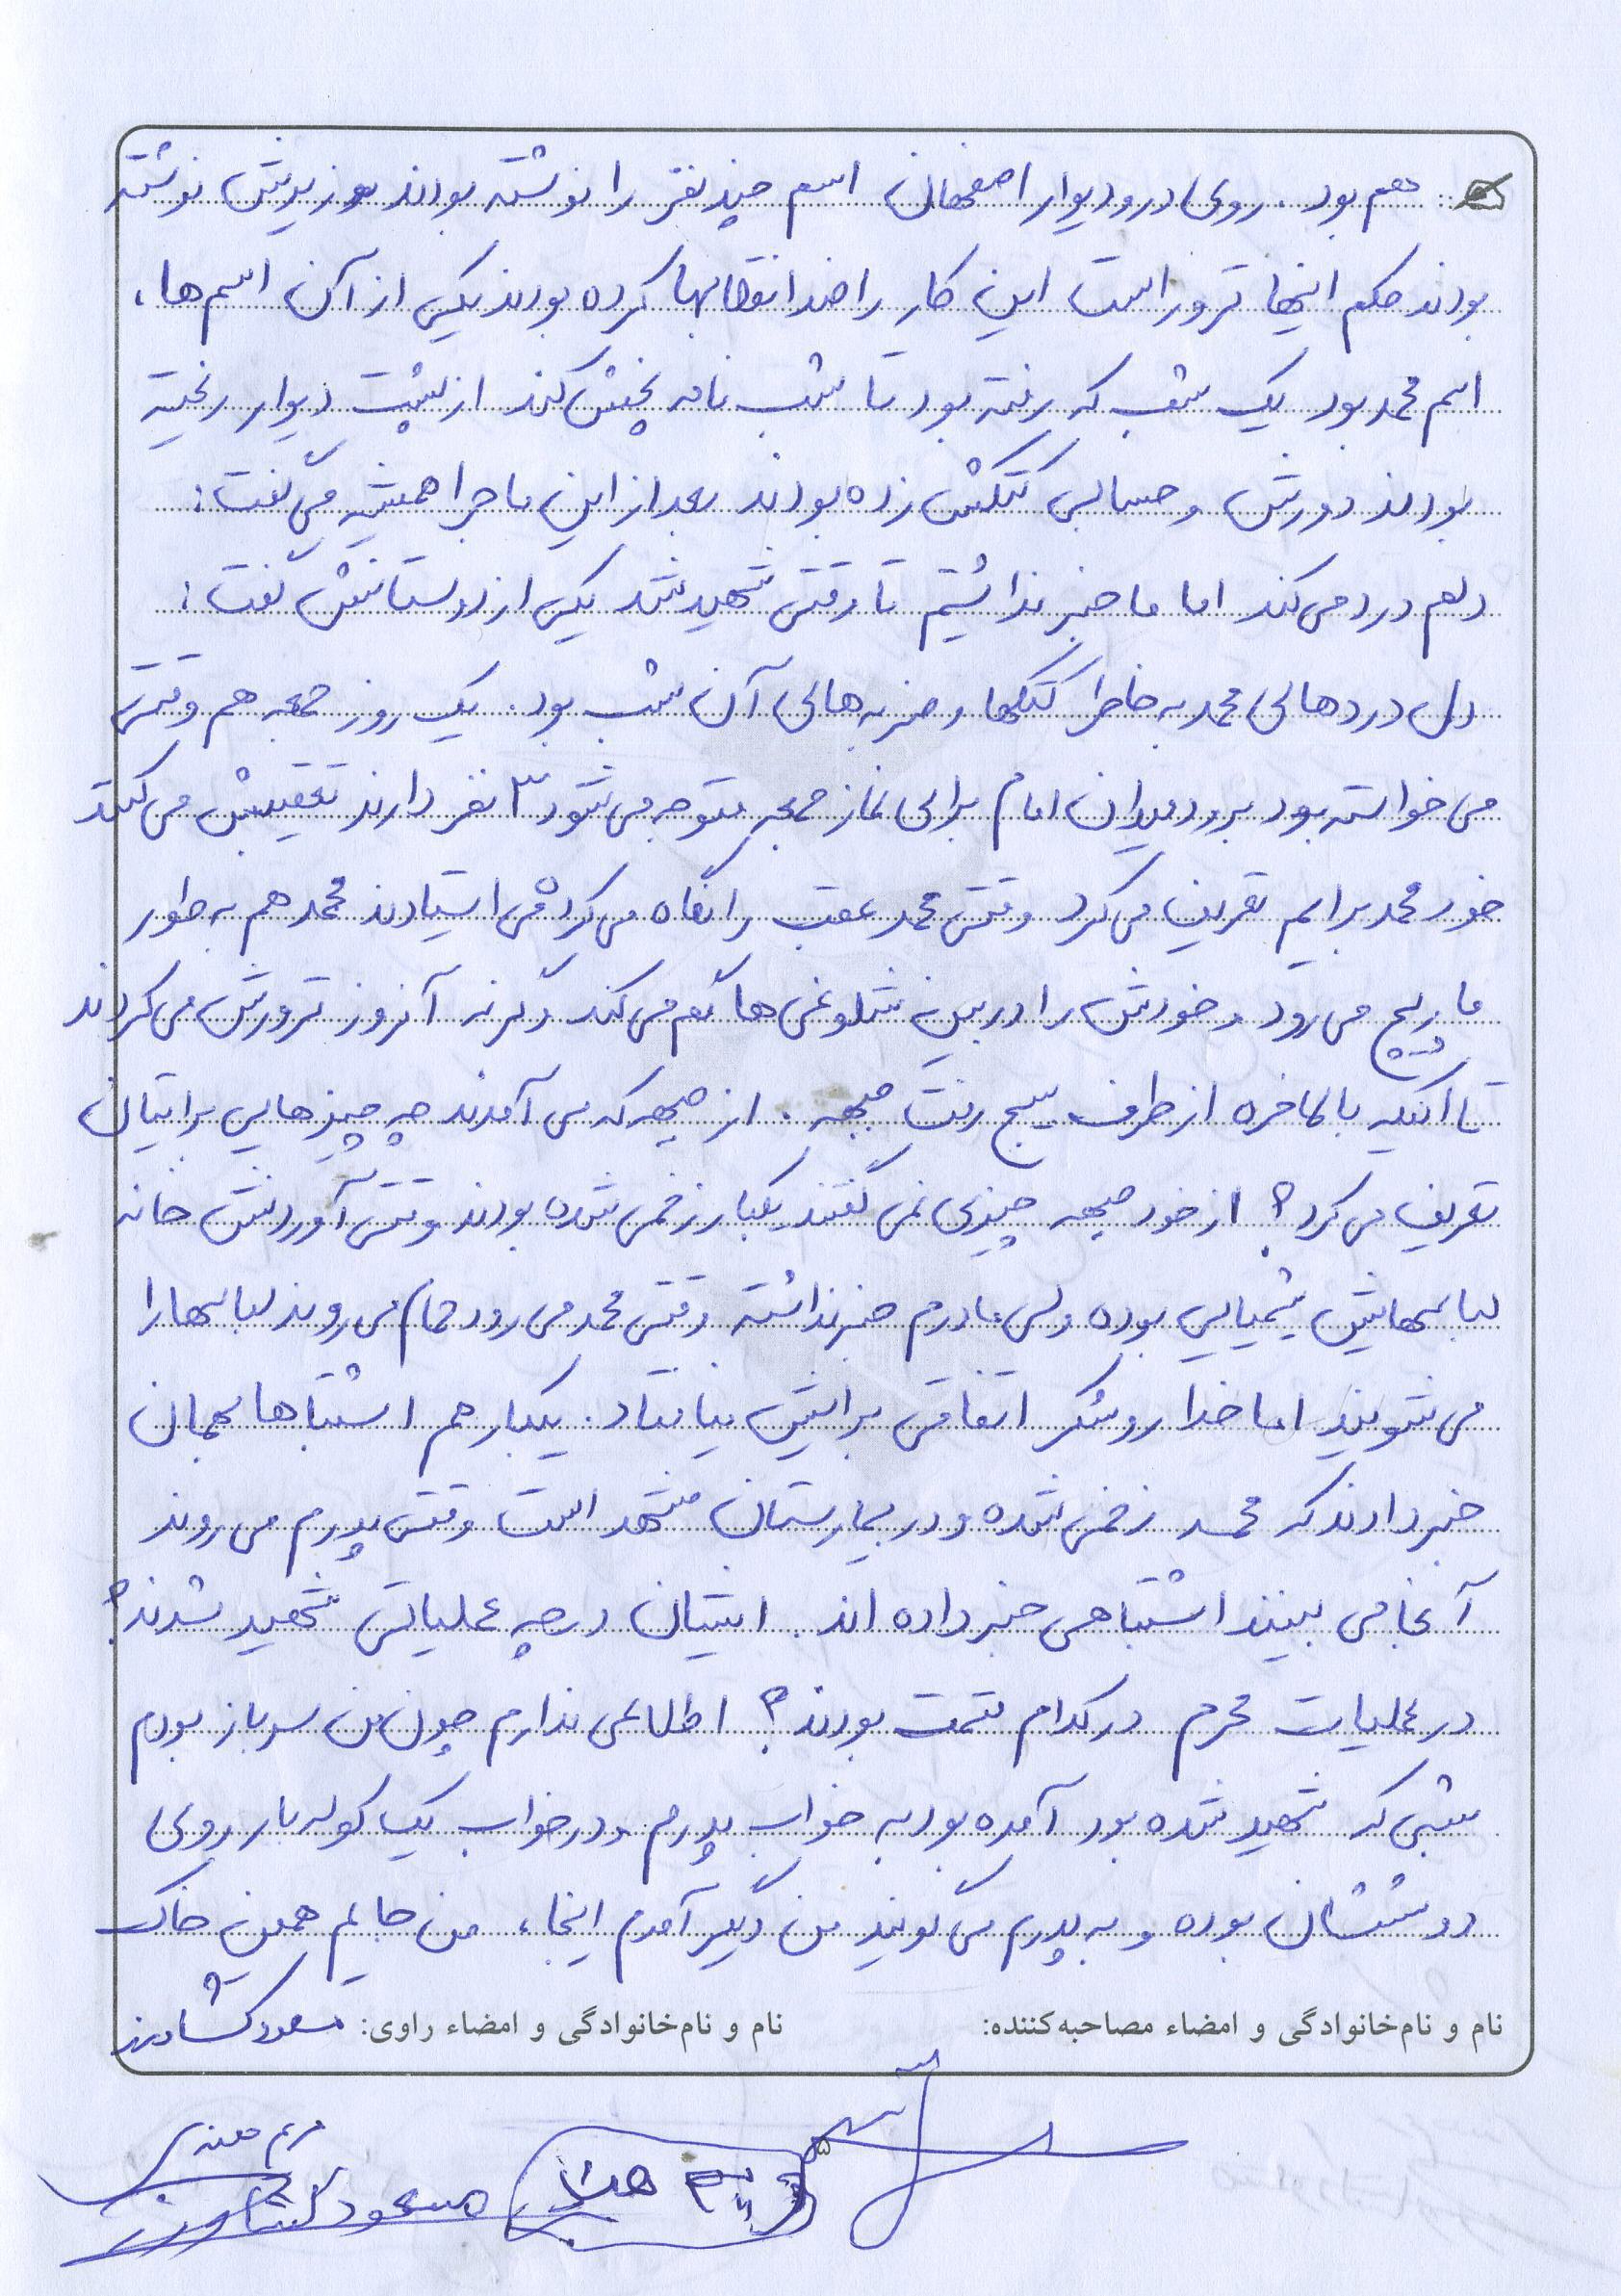 هم بود. روی در و دیوار اصفهان اسم چند نفر را نوشته بودند و زیرش نوشته
بودند حکم اینها ترور است این کار را ضد انقلابها کرده بودند یکی از آن اسم‌ها،
اسم محمد بود یک شب که رفته بود تا شب نامه پخش کند از پشت دیوار ریخته
بودند دورش و حسابی کتکش زده بودند بعد از این ماجرا همیشه می‌گفت:
دلم درد می‌کند اما ما خبر نداشتیم تا وقتی شهید شد یکی از دوستانش گفت:
دل دردهای محمد به خاطر کتکها و ضربه‌های آن شب بود. یک روز جمعه هم وقتی
می‌خواسته بود برود میدان امام برای نماز جمعه متوجه می‌شود ۳ نفر دارند تعقیبش می‌کنند
خود محمد برایم تعریف می‌کرد وقتی محمد عقب را نگاه می‌کرد می‌استیادند محمد هم به طور
مارپیچ می‌رود و خودش را در بین شلوغی‌ها گم می‌کند وگرنه آنروز ترورش می‌کردند
تا اینکه بالاخره از طرف بسیج رفت جبهه. از جبهه که می‌آمدند چه چیزهایی برایتان
تعریف می‌کرد؟ از خود جبهه چیزی نمی‌گفتند یکبار زخمی شده بودند وقتی آوردنش خانه
لباسهایش شیمیایی بوده ولی مادرم خبر نداشته وقتی محمد می‌رود حمام می‌روند لباسها را
می‌شویند اما خدا رو شکر اتفاقی برایش نیافتاد. یکبار هم اشتباها بهمان
خبر دادند که محمد زخمی شده و در بیمارستان مشهد است وقتی پدرم می‌روند
آنجا می‌بینند اشتباهی خبر داده‌اند. ایشان در چه عملیاتی شهید شدند؟
در عملیات محرم در کدام قسمت بودند؟ اطلاعی ندارم چون من سرباز بودم
شبی که شهید شده بود آمده بود به خواب پدرم و در خواب یک کوله‌بار روی
دوششان بوده و به پدرم می‌گویند من دیگر آمدم اینجا، من جایم همین خاک
نام و نام‌خانوادگی و امضاء مصاحبه‌کننده: نام و نام‌خانوادگی و امضاء راوی: مسعود کشاورز
مریم
مسعود کشاورز